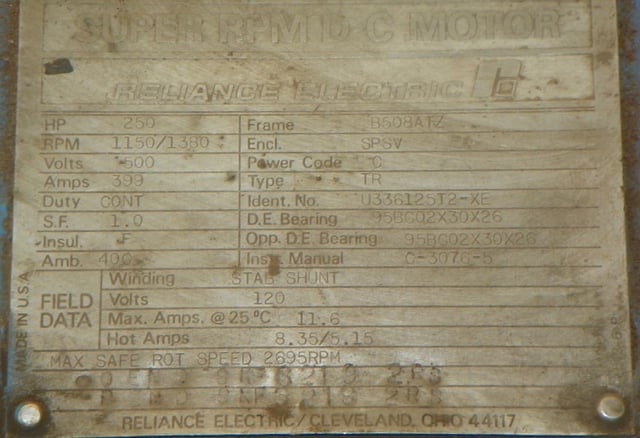 SUPER RPM D-C MOTOR
RELIANCE ELECTRIC
HP 250 Frame B508ATZ
RPM 1150/1380 Encl. SPSV
Volts 500 Power Code C
Amps 399 Type TR
Duty CONT Ident. No. U336125T2-XE
S.F. 1.0 D.E. Bearing 95BC02X30X26
Insul. F Opp. D.E. Bearing 95BC02X30X26
Amb. 40C Instr. Manual C-3076-5
FIELD DATA
Winding STAB SHUNT
Volts 120
Max. Amps. @ 25 ºC 11.6
Hot Amps 8.35/5.15
MAX SAFE ROT SPEED 2695RPM
MADE IN U.S.A.
RELIANCE ELECTRIC/CLEVELAND, OHIO 44117